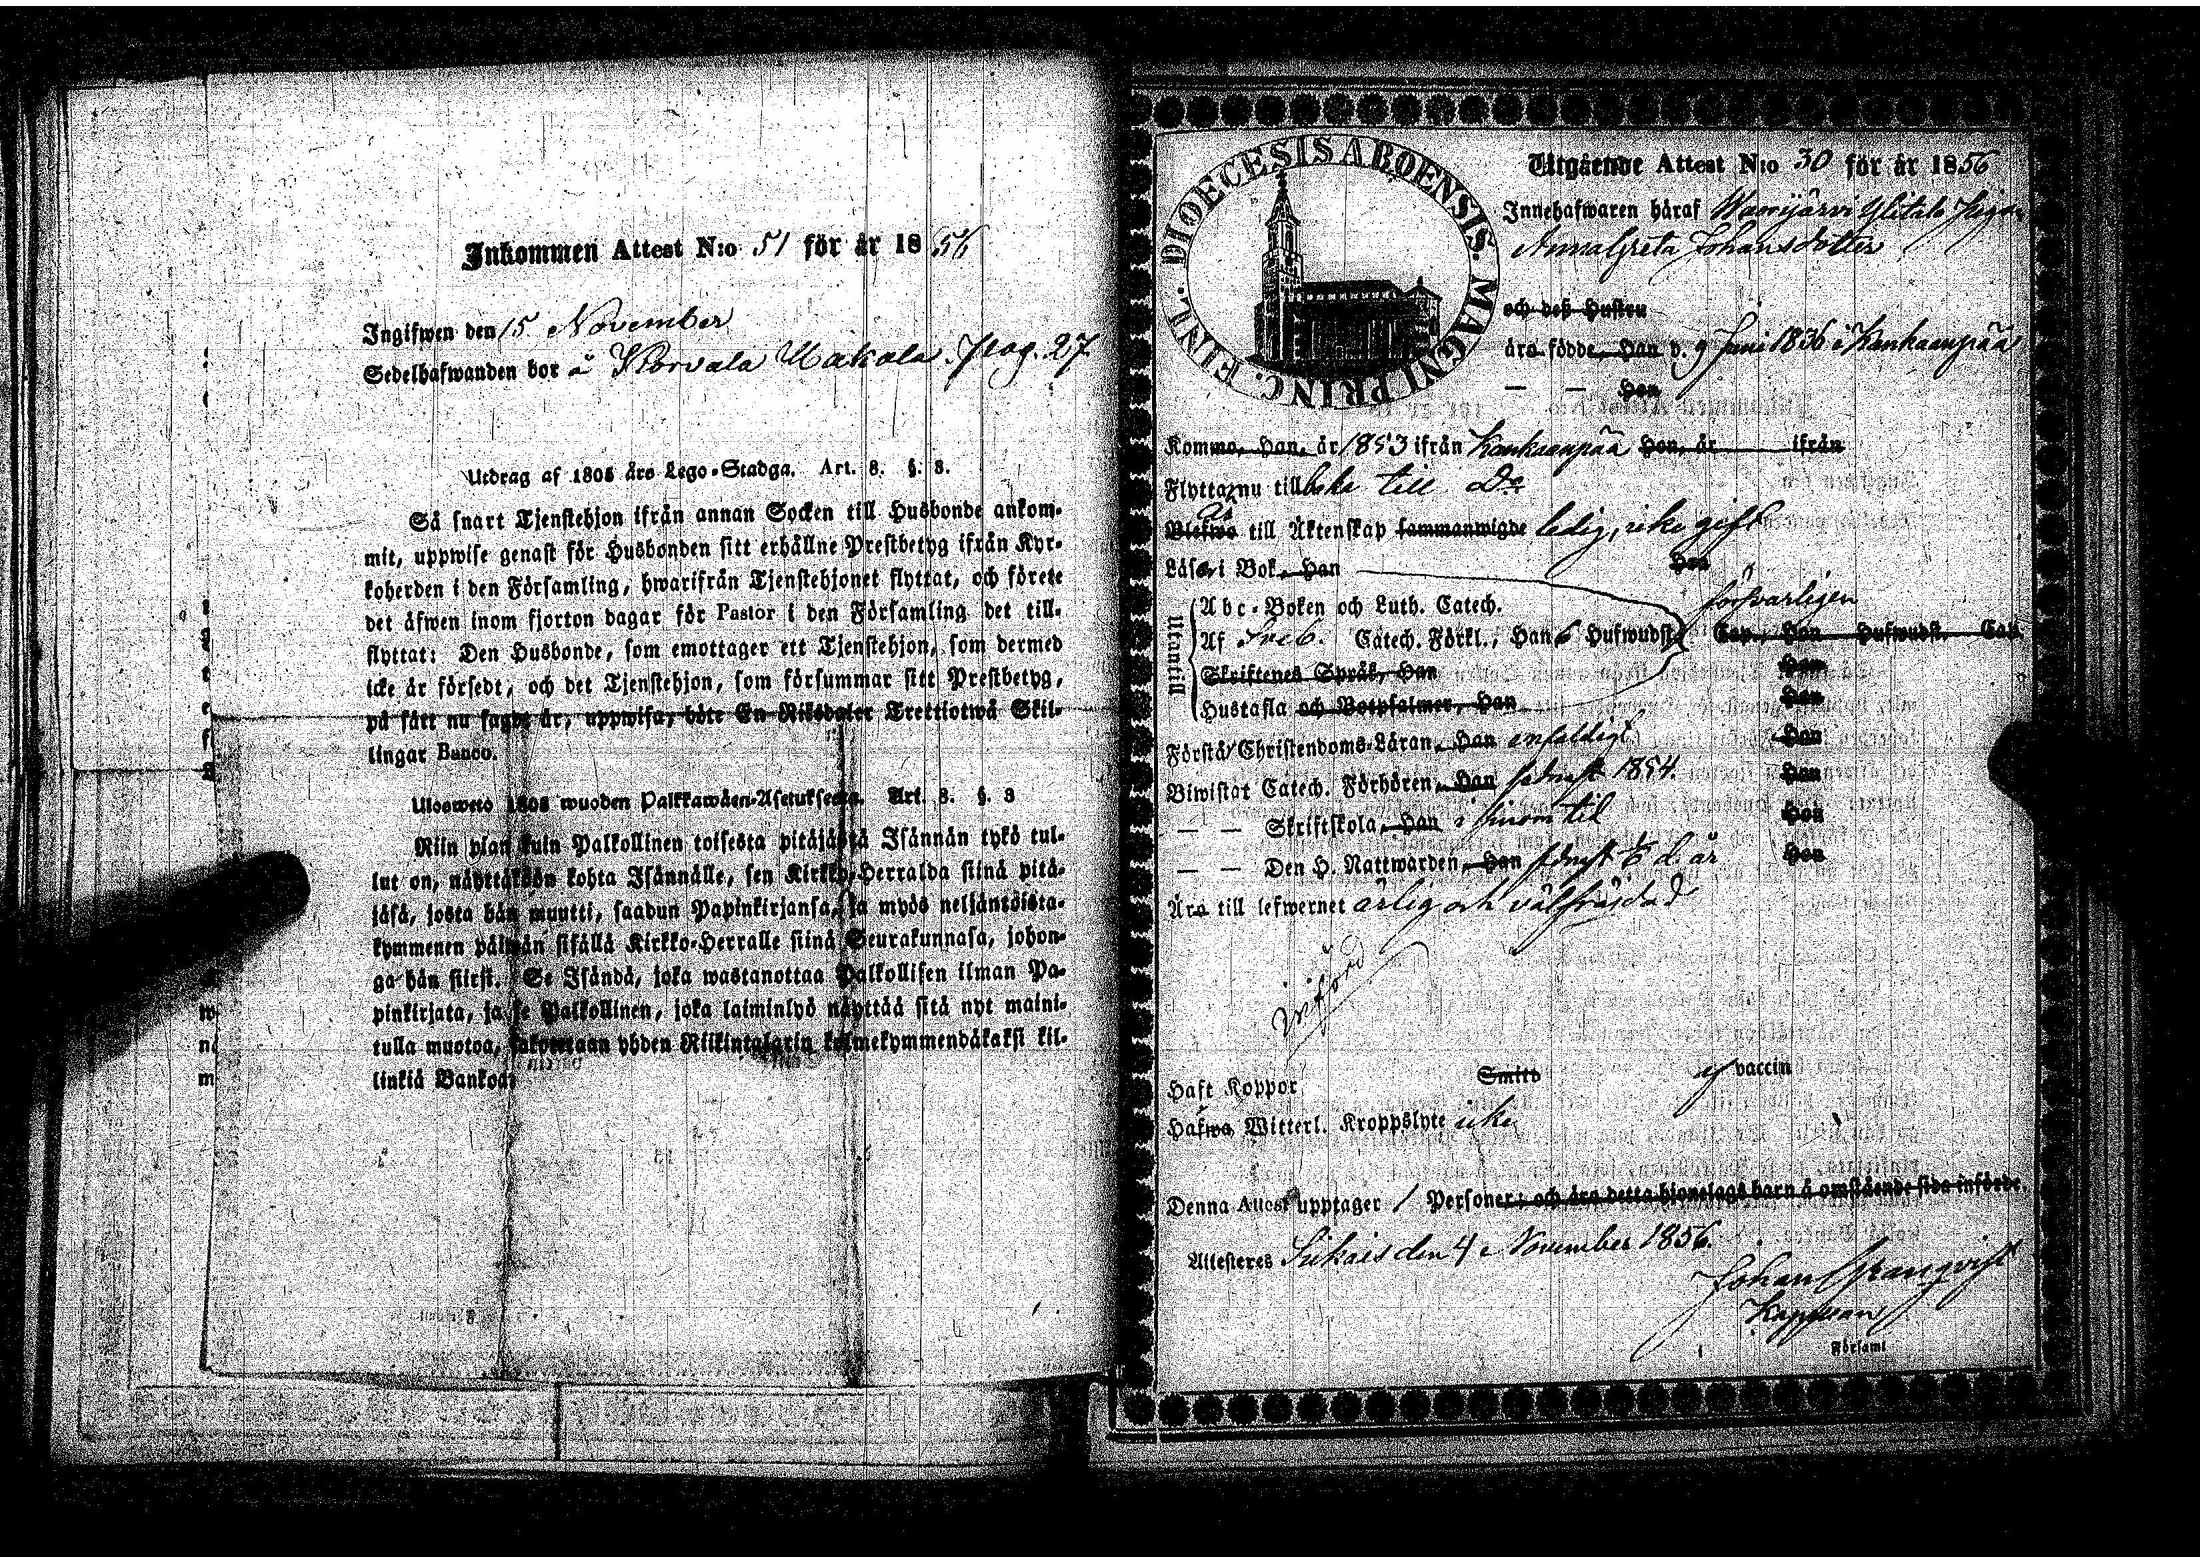 Inkommen Attest N:o 51 för år 1856
Ingifwen den 15 November
Sedelhafwanden bor å Korvala Makala. pag. 27
Utdrag af 1805 års Lego-Stadga. Art. 8. §. 3.
Så snart Tjenstehjon ifrån annan Socken till Husbonde ankom-
mit, uppwise genast för Husbonden sitt erhållne Prestbetyg ifrån Kyr-
koherden i den Församling, hwarifrån Tjenstehjonet flyttat, och förete
det äfwen inom fjorton dagar för Pastor i den Församling det till-
flyttat: Den Husbonde, som emottager ett Tjenstehjon, som dermed
icke är försedt, och det Tjenstehjon, som försummar sitt Prestbetyg,
på sätt nu sagdt är, uppwisa, böte En Riksdaler Trettiotwå Skil-
lingar Banco.
Ulosweto 1805 wuoden Palkkawäen-Asetuksesta. Art. 8. §. 3
Niin pian kuin Palkollinen toisesta pitäjästä Isännän tykö tul-
lut on, näyttäköön kohta Isännälle, sen Kirkko-Herralda siinä pitä-
jäsä, josta hän muutti, saadun Papinkirjansa, ja myös neljäntöista-
kymmenen päiwän sisällä Kirkko-Herralle siinä Seurakunnasa, johon-
ga hän siirsi. Se Isändä, joka wastanottaa Palkollisen ilman Pa-
pinkirjata, ja se Palkollinen, joka laiminlyö näyttää sitä nyt maini-
tulla muotoa, sakotetaan yhden Riikintalarin kolmekymmendäkaksi kil-
linkiä Bankoa.
DIOECESIS ABOENSIS. MAGNI PRINC. FINL.
Utgående Attest N:o 30 för år 1856
Innehafwaren häraf Wanijärvi Ylitalo Piga
Anna Greta Johansdotter
och deß Hustru
äro födde, Han d. 9 Juni 1836 i Kankaanpää
— — Hon
Kommo, Han, år 1853 ifrån Kankaanpää Hon, år ifrån
Flytta nu tillbaka till Do
Blefwo till Äktenskap sammanwigde ledig, icke gift
Läser i Bok, Han Hon
försvarligen
Utantill
Abc-Boken och Luth. Catech.
Af Sveb. Catech. Förkl., Han 6 Hufwudst. Cap., Hon Hufwudst. Cap.
Skriftenes Språk, Han Hon
Hustafla och Botpsalmer, Han Hon
Förstå Christendoms-Läran, Han enfaldigt Hon
Biwistat Catech. Förhören, Han sednast 1854. Hon
— — Skriftskola, Han i sinom tid Hon
— — Den H. Nattwarden, Han sednast d. år Hon
Äro till lefwernet ärlig och välfräjdad
införd
Haft Koppor Smitt ej vaccin
Hafwa Witterl. Kroppslyte icke
Denna Attest upptager 1 Personer; och äro detta hjonelags barn å omstående sida införde.
Attesteres Siikais den 4 November 1856.
Johan Granqvist
Kappelan
Församl